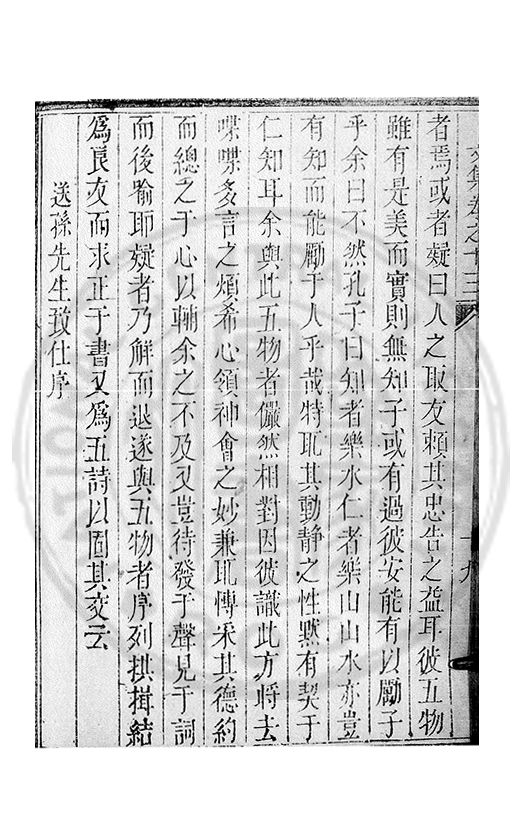 文集卷之十三
十九
者焉或者疑曰人之取友賴其忠告之益耳彼五物
雖有是美而實則無知子或有過彼安能有以勵子
乎余曰不然孔子曰知者樂水仁者樂山山水亦豈
有知而能勵于人乎哉特取其動靜之性默有契于
仁知耳余與此五物者儼然相對因彼識此方將去
喋喋多言之煩希心領神會之妙兼取博采其德約
而總之于心以輔余之不及又豈待發于聲見于詞
而後喻耶疑者乃解而退遂與五物者序列拱揖結
爲良友而求正于書又爲五詩以固其交云
送孫先生致仕序